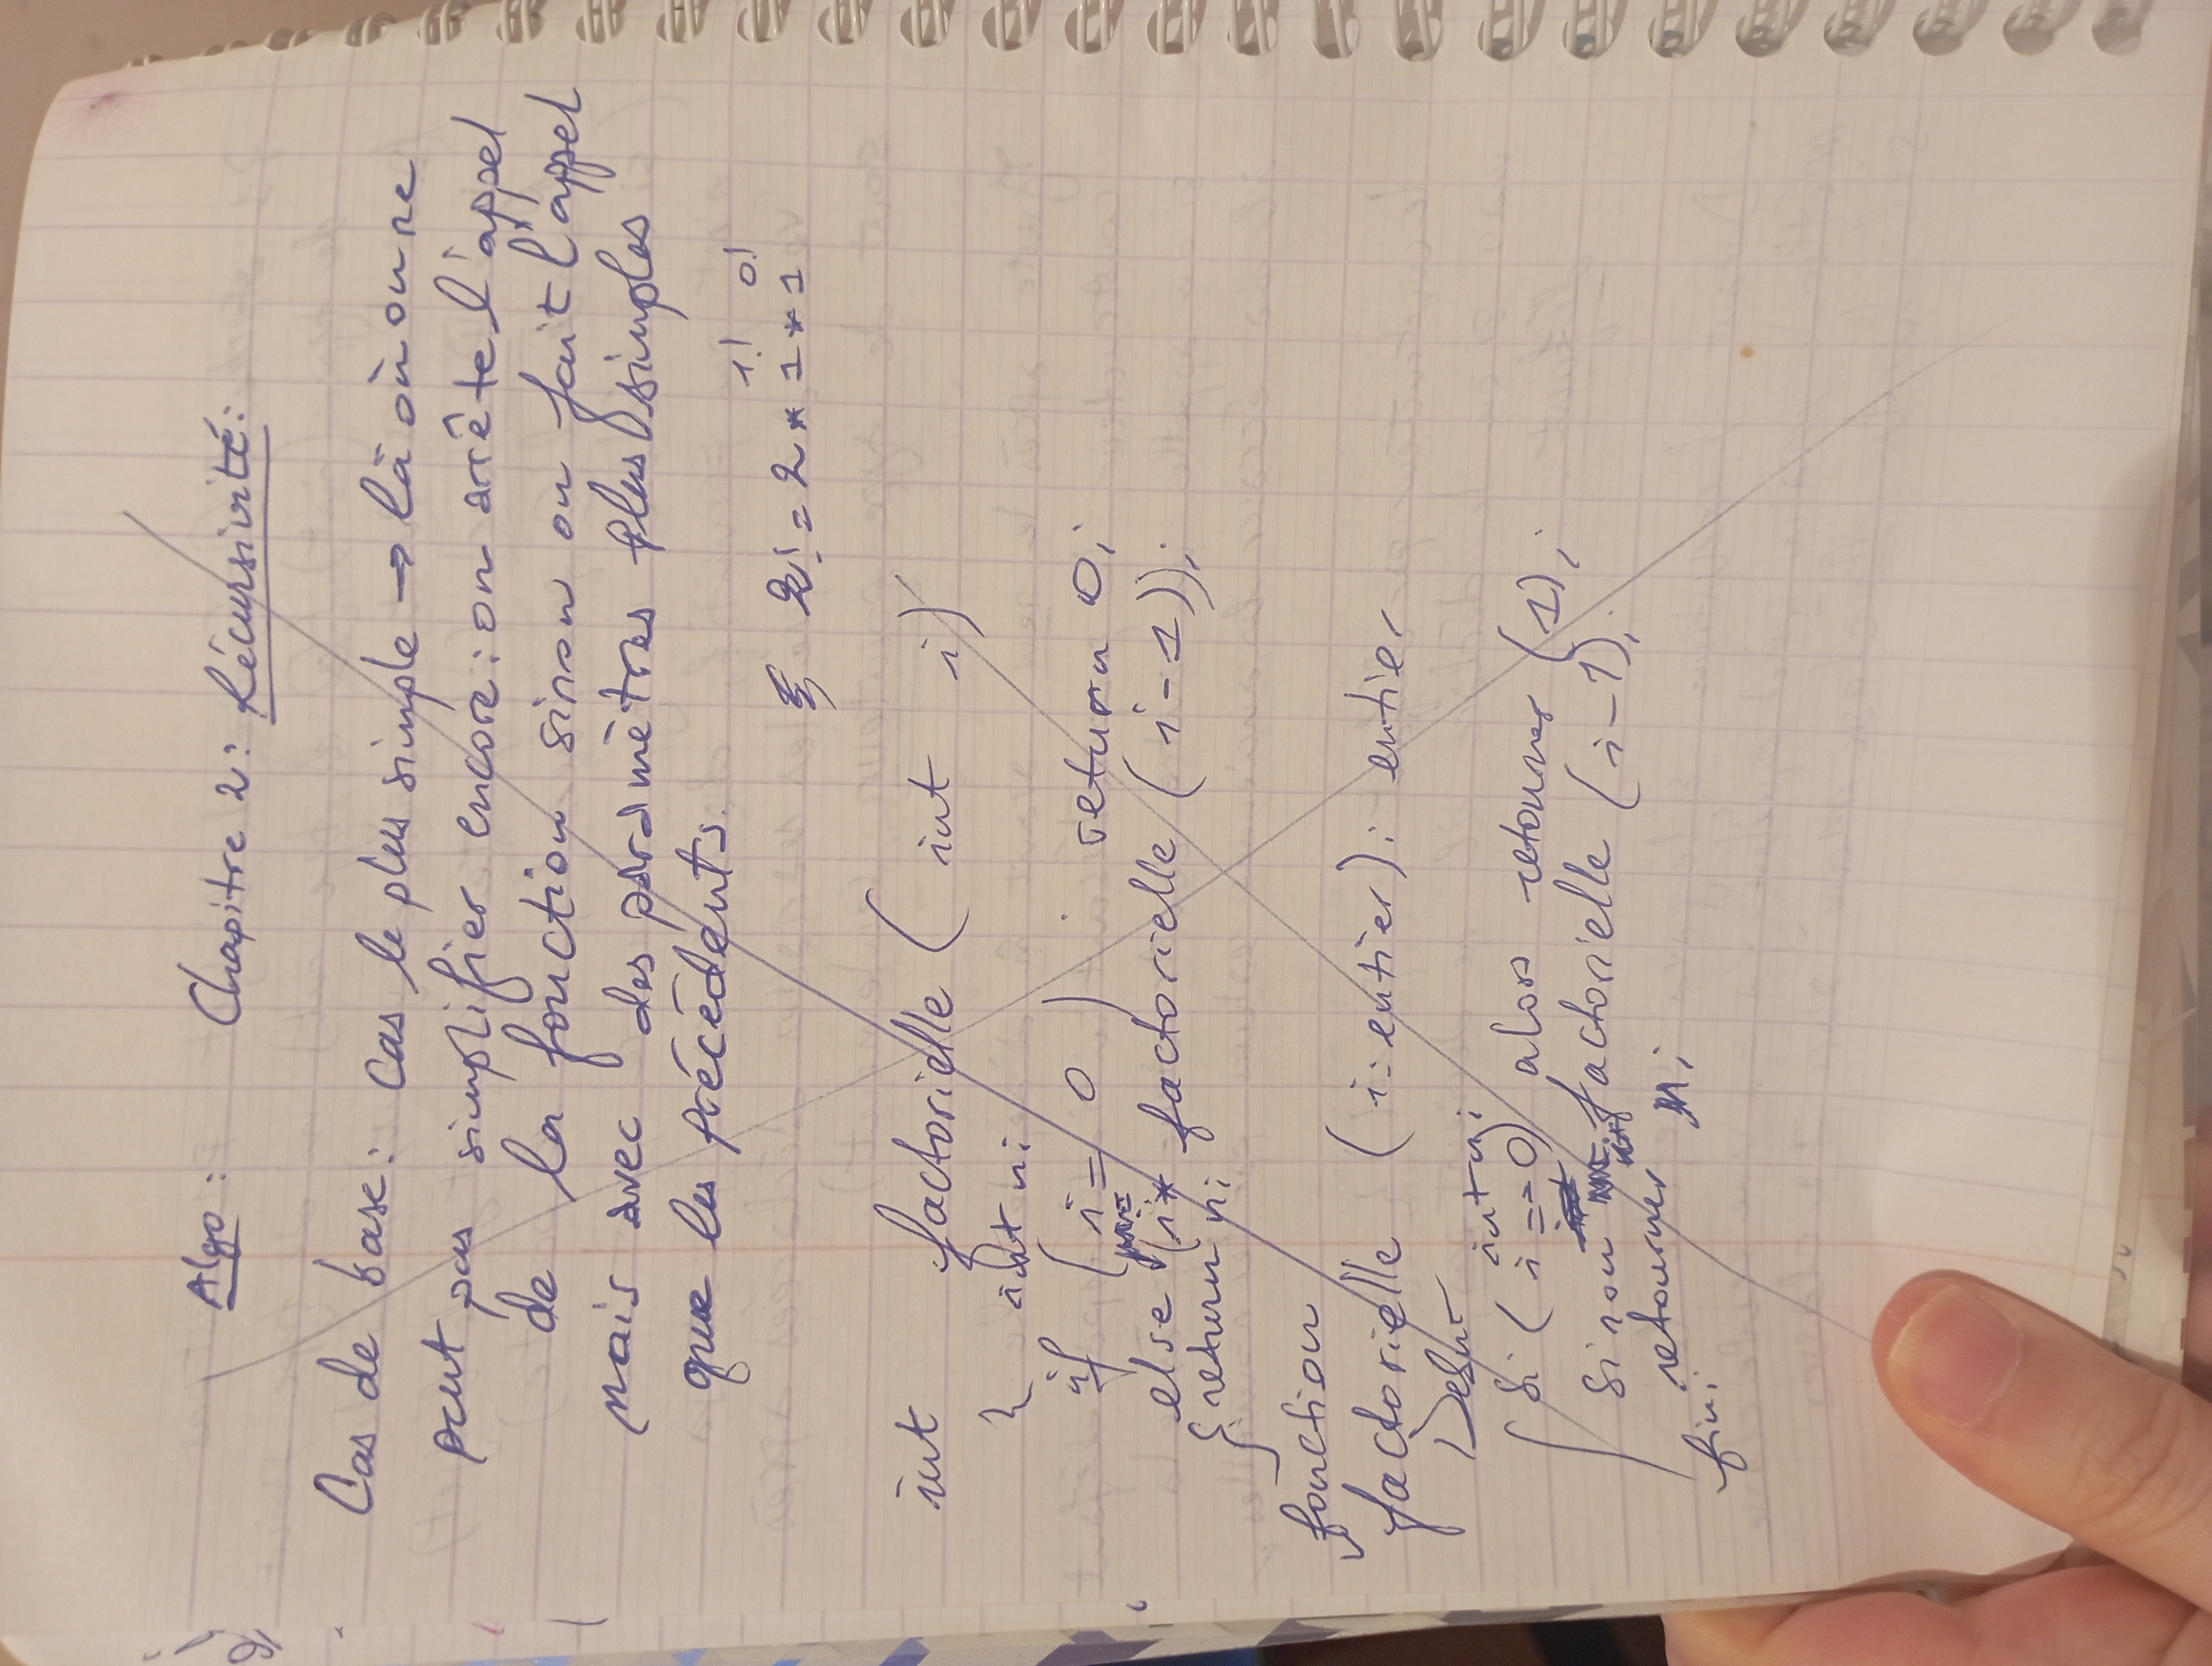 Algo : Chapitre 2 : Récursivité :
Cas de base : Cas le plus simple → là où on ne
peut pas simplifier encore : on arrête l'appel
de la fonction sinon on fait l'appel
mais avec des paramètres plus simples
que les précédents.
1! 0!
2! = 2 * 1 * 1
int factorielle ( int i )
{ int n;
if ( i = 0 ) return 0;
else (i * factorielle ( i - 1 ));
return n;
}
fonction
factorielle ( i : entier ) : entier
Debut
int n;
Si ( i == 0 ) alors retourner (1);
Sinon factorielle ( i - 1 );
retourner n;
fin;